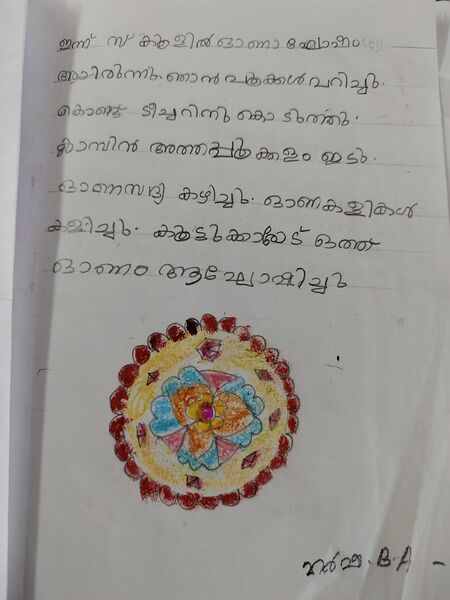 ഇന്ന് സ്കൂളിൽ ഓണാഘോഷം
ആയിരുന്നു. ഞാൻ പൂക്കൾ പറിച്ചു.
കൊണ്ട് ടീച്ചറിനു കൊടുത്തു.
ക്ലാസിൽ അത്തപ്പൂക്കളം ഇട്ടു.
ഓണസദ്യ കഴിച്ചു. ഓണകളികൾ
കളിച്ചു. കൂട്ടുക്കാരോട് ഒത്ത്
ഓണം ആഘോഷിച്ചു
B.A